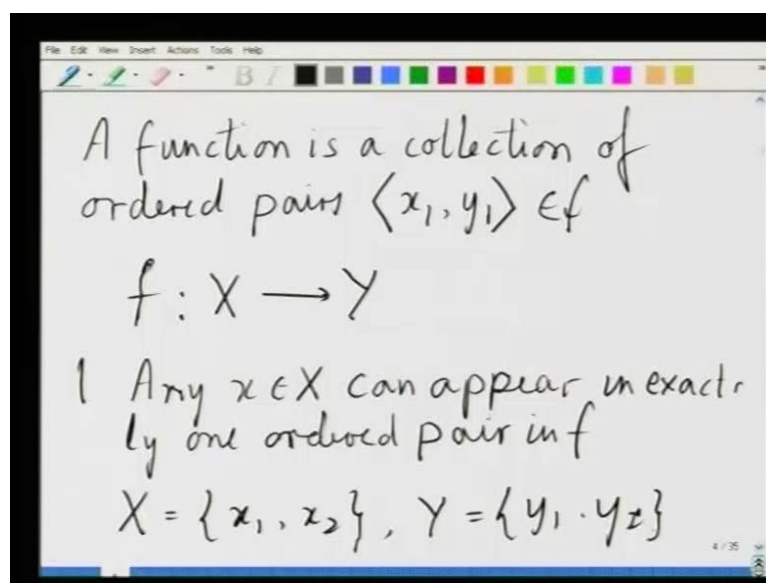 File Edit View Insert Actions Tools Help
B I
A function is a collection of
ordered pairs ⟨x₁, y₁⟩ ∈ f
f : X → Y
1 Any x ∈ X can appear in exact-
ly one ordered pair in f
X = {x₁, x₂}, Y = {y₁. y₂}
4/35